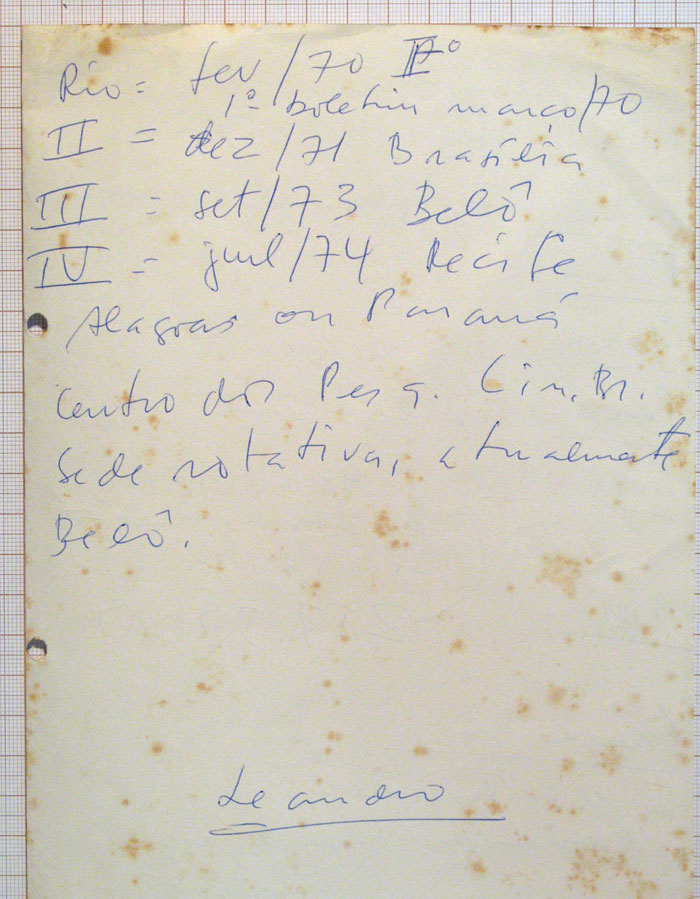 Rio = fev/70 Iº
1º boletim março/70
II = dez/71 Brasília
III = set/73 Belô
IV = jul/74 Recife
Alagoas ou Paraná
Centro dos Pesq. Cin. Br.
Sede rotativa, atualmente
Belô.
Leandro